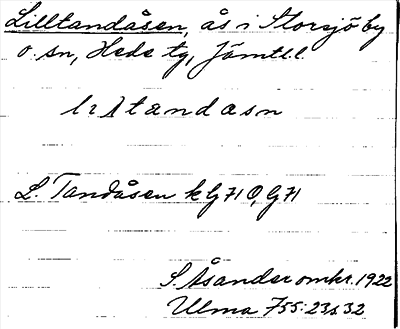 Lilltandåsen, ås i Storsjö by
o. sn, Hede tg, Jämtl.l.
tandåsn
L. Tandåsen k G 71 Ö, G 71
S. Åsander omkr. 1922
Ulma 755:23 s 32